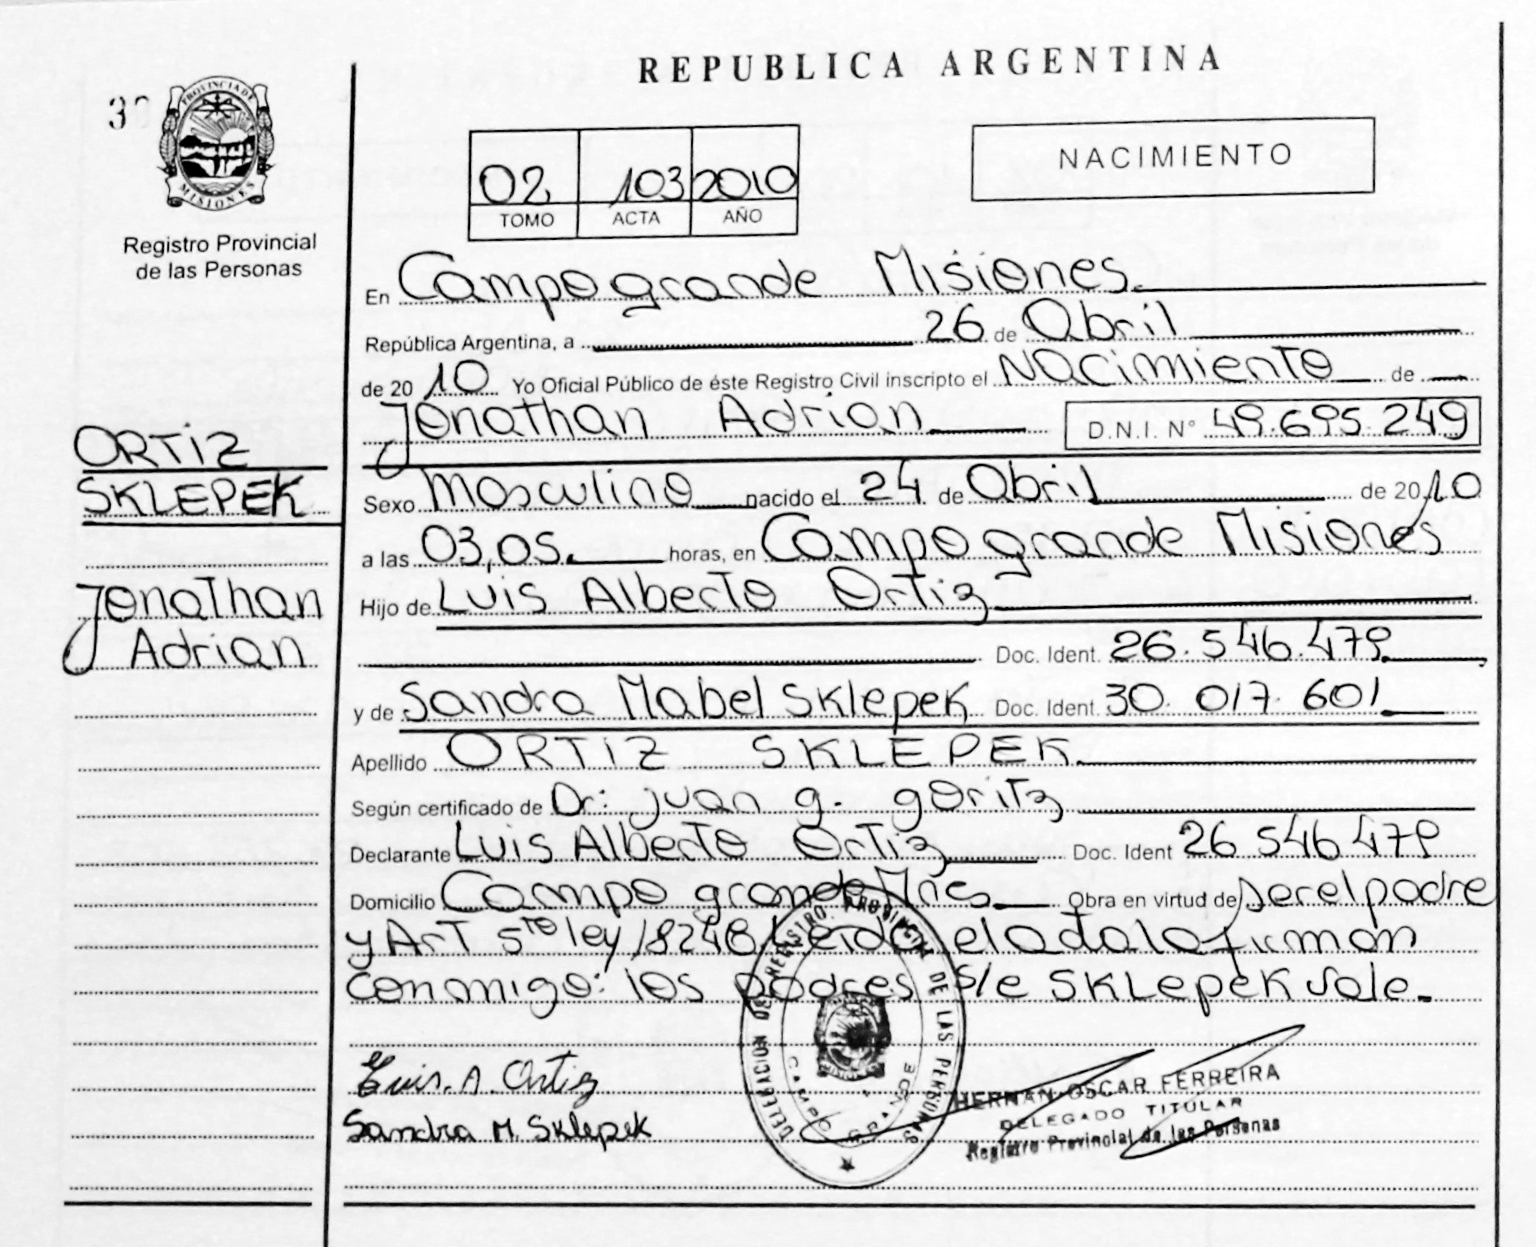 REPUBLICA ARGENTINA
30
PROVINCIA DE MISIONES
Registro Provincial
de las Personas
02 103 2010
TOMO ACTA AÑO
NACIMIENTO
En Campo grande Misiones.
República Argentina, a 26 de Abril
de 2010 Yo Oficial Público de éste Registro Civil inscripto el Nacimiento de
Jonathan Adrian D.N.I. Nº 49.695.249
Sexo Masculino nacido el 24 de Abril de 2010
a las 03,05. horas, en Campo grande Misiones
Hijo de Luis Alberto Ortiz
Doc. Ident. 26.546.479
y de Sandra Mabel Sklepek Doc. Ident. 30.017.601
Apellido ORTIZ SKLEPEK.
Según certificado de Dr: juan g. goritz
Declarante Luis Alberto Ortiz Doc. Ident 26 546 479
Domicilio Campo grande Mnes. Obra en virtud de ser el padre
y ArT 5to ley 18248 Leida el acta la firman
conmigo: los padres s/e SKLepeK vale.
ORTIZ
SKLEPEK
Jonathan
Adrian
Luis. A. Ortiz
Sandra M. Sklepek
DELEGACION DE REGISTRO PROVINCIAL DE LAS PERSONAS
CAMPO GRANDE
HERNAN OSCAR FERREIRA
DELEGADO TITULAR
Registro Provincial de las Personas